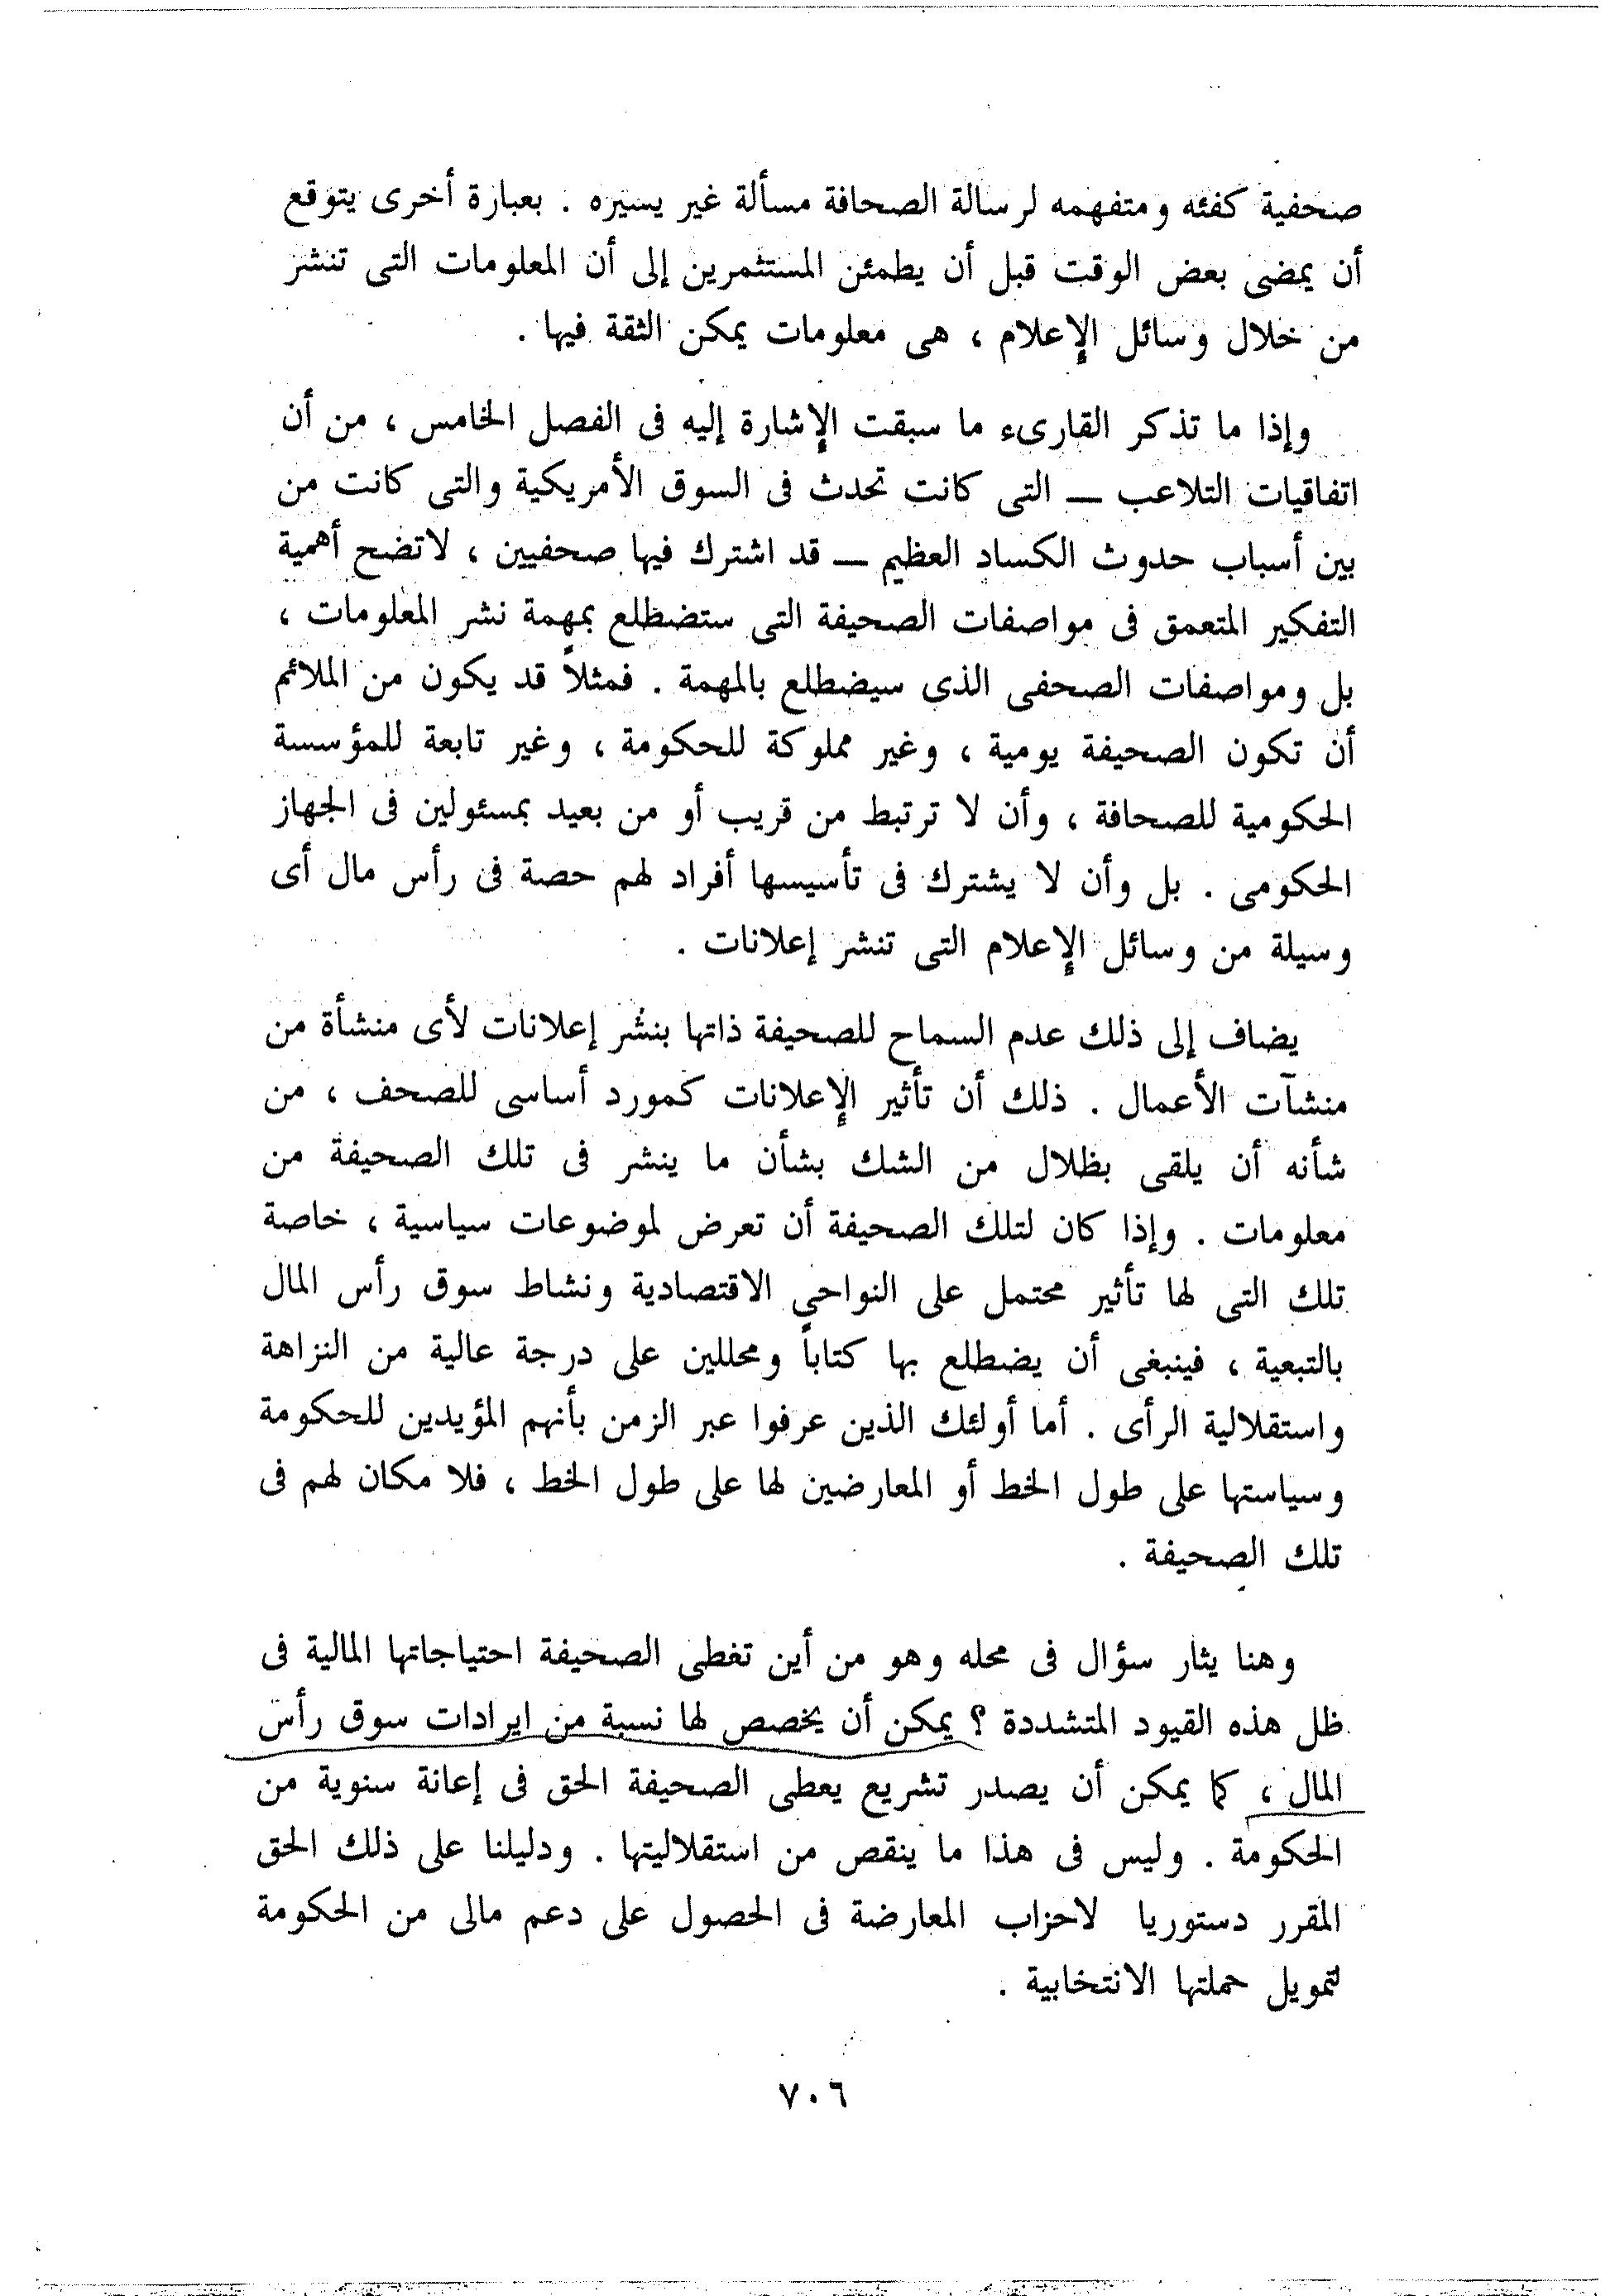 صحفية كفئه ومتفهمه لرسالة الصحافة مسألة غير يسيره . بعبارة أخرى يتوقع
أن يمضى بعض الوقت قبل أن يطمئن المستثمرين إلى أن المعلومات التى تنشر
من خلال وسائل الإعلام ، هى معلومات يمكن الثقة فيها .
وإذا ما تذكر القارىء ما سبقت الإشارة إليه فى الفصل الخامس ، من أن
اتفاقيات التلاعب ــ التى كانت تحدث فى السوق الأمريكية والتى كانت من
بين أسباب حدوث الكساد العظيم ــ قد اشترك فيها صحفيين ، لاتضح أهمية
التفكير المتعمق فى مواصفات الصحيفة التى ستضطلع بمهمة نشر المعلومات ،
بل ومواصفات الصحفى الذى سيضطلع بالمهمة . فمثلاً قد يكون من الملائم
أن تكون الصحيفة يومية ، وغير مملوكة للحكومة ، وغير تابعة للمؤسسة
الحكومية للصحافة ، وأن لا ترتبط من قريب أو من بعيد بمسئولين فى الجهاز
الحكومى . بل وأن لا يشترك فى تأسيسها أفراد لهم حصة فى رأس مال أى
وسيلة من وسائل الإعلام التى تنشر إعلانات .
يضاف إلى ذلك عدم السماح للصحيفة ذاتها بنشر إعلانات لأى منشأة من
منشآت الأعمال . ذلك أن تأثير الإعلانات كمورد أساسى للصحف ، من
شأنه أن يلقى بظلال من الشك بشأن ما ينشر فى تلك الصحيفة من
معلومات . وإذا كان لتلك الصحيفة أن تعرض لموضوعات سياسية ، خاصة
تلك التى لها تأثير محتمل على النواحى الاقتصادية ونشاط سوق رأس المال
بالتبعية ، فينبغى أن يضطلع بها كتاباً ومحللين على درجة عالية من النزاهة
واستقلالية الرأى . أما أولئك الذين عرفوا عبر الزمن بأنهم المؤيدين للحكومة
وسياستها على طول الخط أو المعارضين لها على طول الخط ، فلا مكان لهم فى
تلك الصحيفة .
وهنا يثار سؤال فى محله وهو من أين تغطى الصحيفة احتياجاتها المالية فى
ظل هذه القيود المتشددة ؟ يمكن أن يخصص لها نسبة من ايرادات سوق رأس
المال ، كما يمكن أن يصدر تشريع يعطى الصحيفة الحق فى إعانة سنوية من
الحكومة . وليس فى هذا ما ينقص من استقلاليتها . ودليلنا على ذلك الحق
المقرر دستوريا لاحزاب المعارضة فى الحصول على دعم مالى من الحكومة
لتمويل حملتها الانتخابية .
٧٠٦